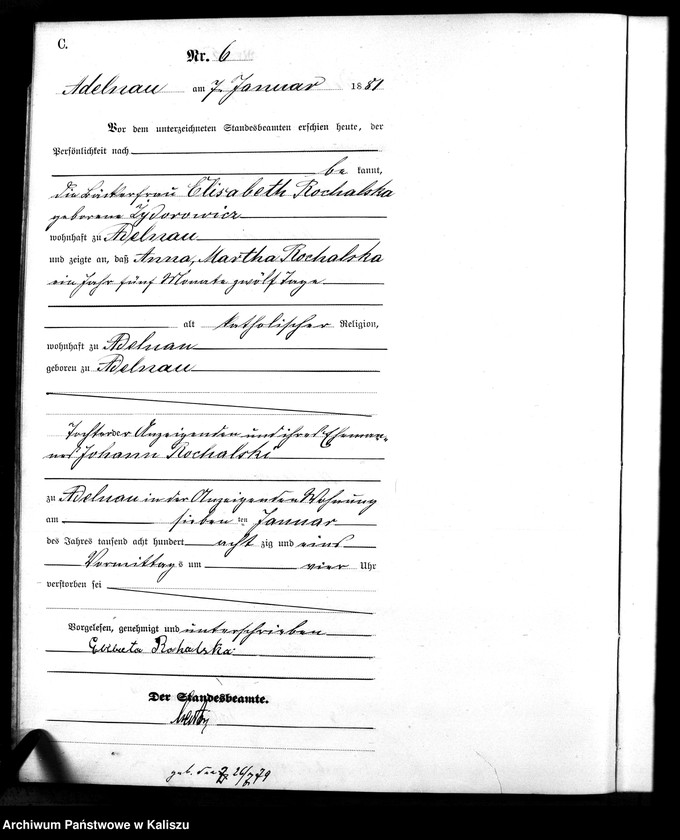 C.
Nr. 6
Adelnau am 7. Januar 1881
Vor dem unterzeichneten Standesbeamten erschien heute, der
Persönlichkeit nach
be kannt,
die Bäckerfrau Elisabeth Rochalska
geborene Zydorowicz
wohnhaft zu Adelnau
und zeigte an, daß Anna, Martha Rochalska
ein Jahr fünf Monate zwölf Tage
alt katholischer Religion,
wohnhaft zu Adelnau
geboren zu Adelnau
Tochter der Anzeigenden und ihres Eheman-
nes Johann Rochalski
zu Adelnau in der Anzeigenden Wohnung
am sieben ten Januar
des Jahres tausend acht hundert acht zig und eins
Vormittags um vier Uhr
verstorben sei
Vorgelesen, genehmigt und unterschrieben
Elzbieta Rohalska
Der Standesbeamte.
geb. den 26/7 79
Archiwum Państwowe w Kaliszu